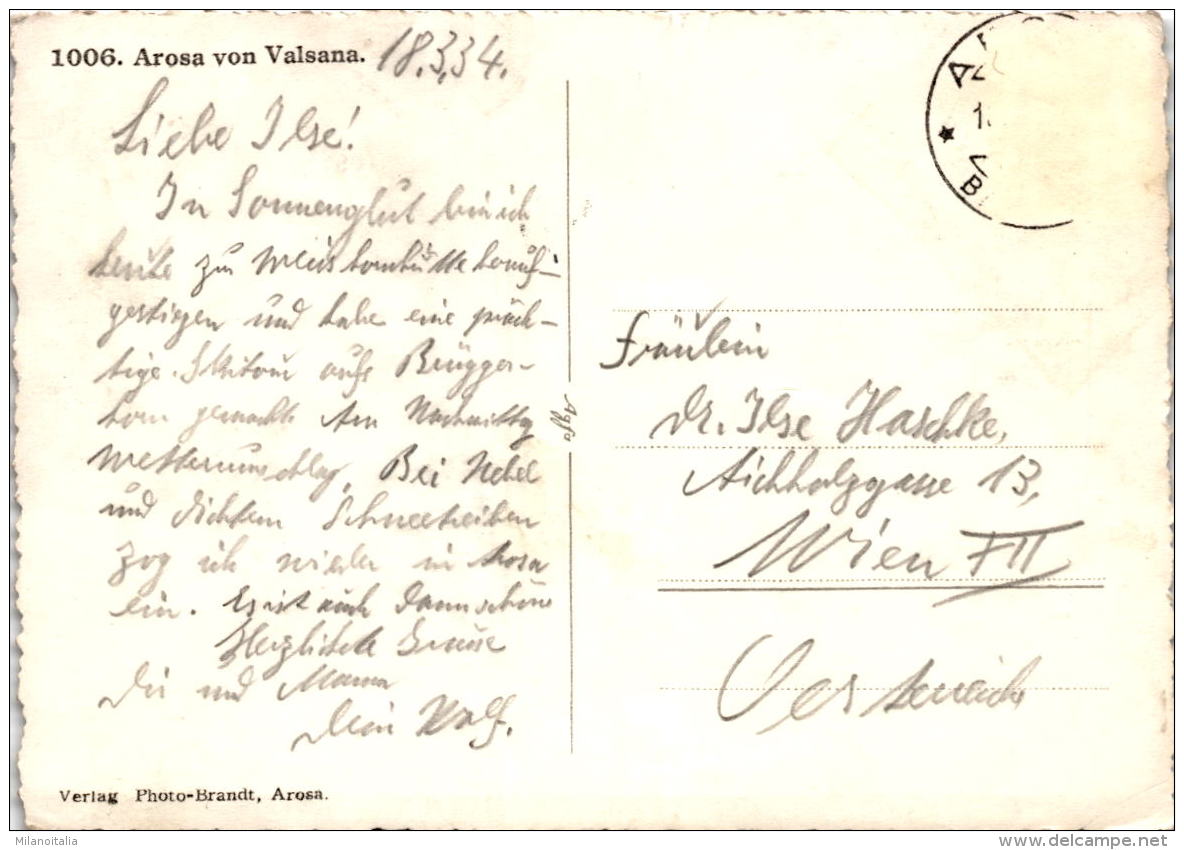 1006. Arosa von Valsana. 18.3.34.
Liebe Ilse!
In Sonnenglut bin ich
heute zur Weisshornhütte herauf-
gestiegen und habe eine präch-
tige Skitour aufs Brügger-
horn gemacht. Am Nachmittag
Wetterumschlag. Bei Nebel
und dichtem Schneetreiben
zog ich wieder in Arosa
ein. Es ist auch dann schön
Herzlichste Grüsse
Dir und Mama
Dein
Verlag Photo-Brandt, Arosa.
Agfa
Fräulein
Dr. Ilse Haschke,
Aichholzgasse 13,
Wien XII
Oesterreich
Milanoitalia
delcampe.net